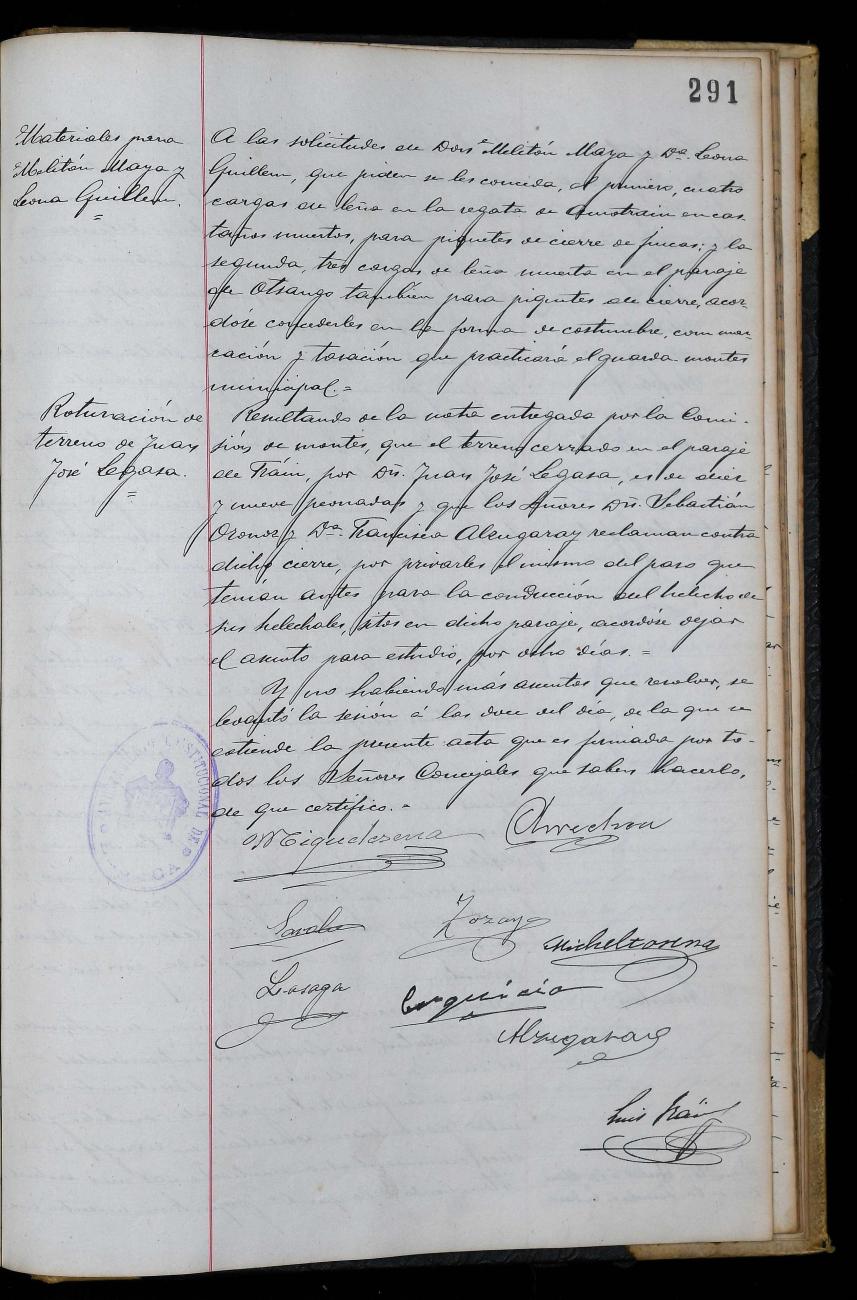 291
Materiales para
Melitón Maya y
Leona Guillen.
=
A las solicitudes de Don Melitón Maya y Dª. Leona
Guillen, que piden se les conceda, al primero, cuatro
cargas de leña en la regata de en cas-
taños muertos, para piquetes de cierre de fincas; y la
segunda, tres cargas de leña muerta en el paraje
de Otsango también para piquetes de cierre, acor-
dóse concederles en la forma de costumbre, con mar-
cación y tasación que practicará el guarda montes
municipal. =
Roturación de
terreno de Juan
José Legasa.
=
Resultando de la nota entregada por la Comi-
sión de montes, que el terreno cerrado en el paraje
de Fráin, por Dn. Juan José Legasa, es de diez
y nueve peonadas y que los Señores Dn. Sebastián
Oronoz y Dª. Francisca Alzugaray reclaman contra
dicho cierre, por privarles el mismo del paso que
tenían antes para la conducción del helecho de
sus helechales, sitos en dicho paraje, acordóse dejar
el asunto para estudio, por ocho días. =
Y no habiendo más asuntos que resolver, se
levantó la sesión á las doce del día, de la que se
estiende la presente acta que es firmada por to-
dos los Señores Concejales que saben hacerlo,
de que certifico. =
CONSTITUCIONAL DE
Migueltorena Arrechea
Zavala Zozaya
Micheltorena
Lasaga
Alzugaray
Luis Fráin